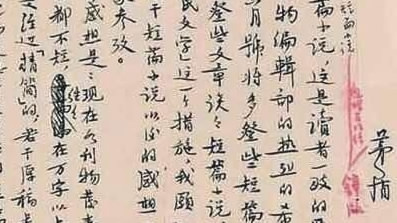 茅盾
篇小说，这是读者一致的
物编辑部的热烈的希
月号将多登些短篇
登些文章谈谈短篇小说
民文学」这一个措施，我颇
干短篇小说以后的感想
参考。
感想是：现在各刊物发表
都不短，往往在万字以上
经过「精简」的，若干原稿